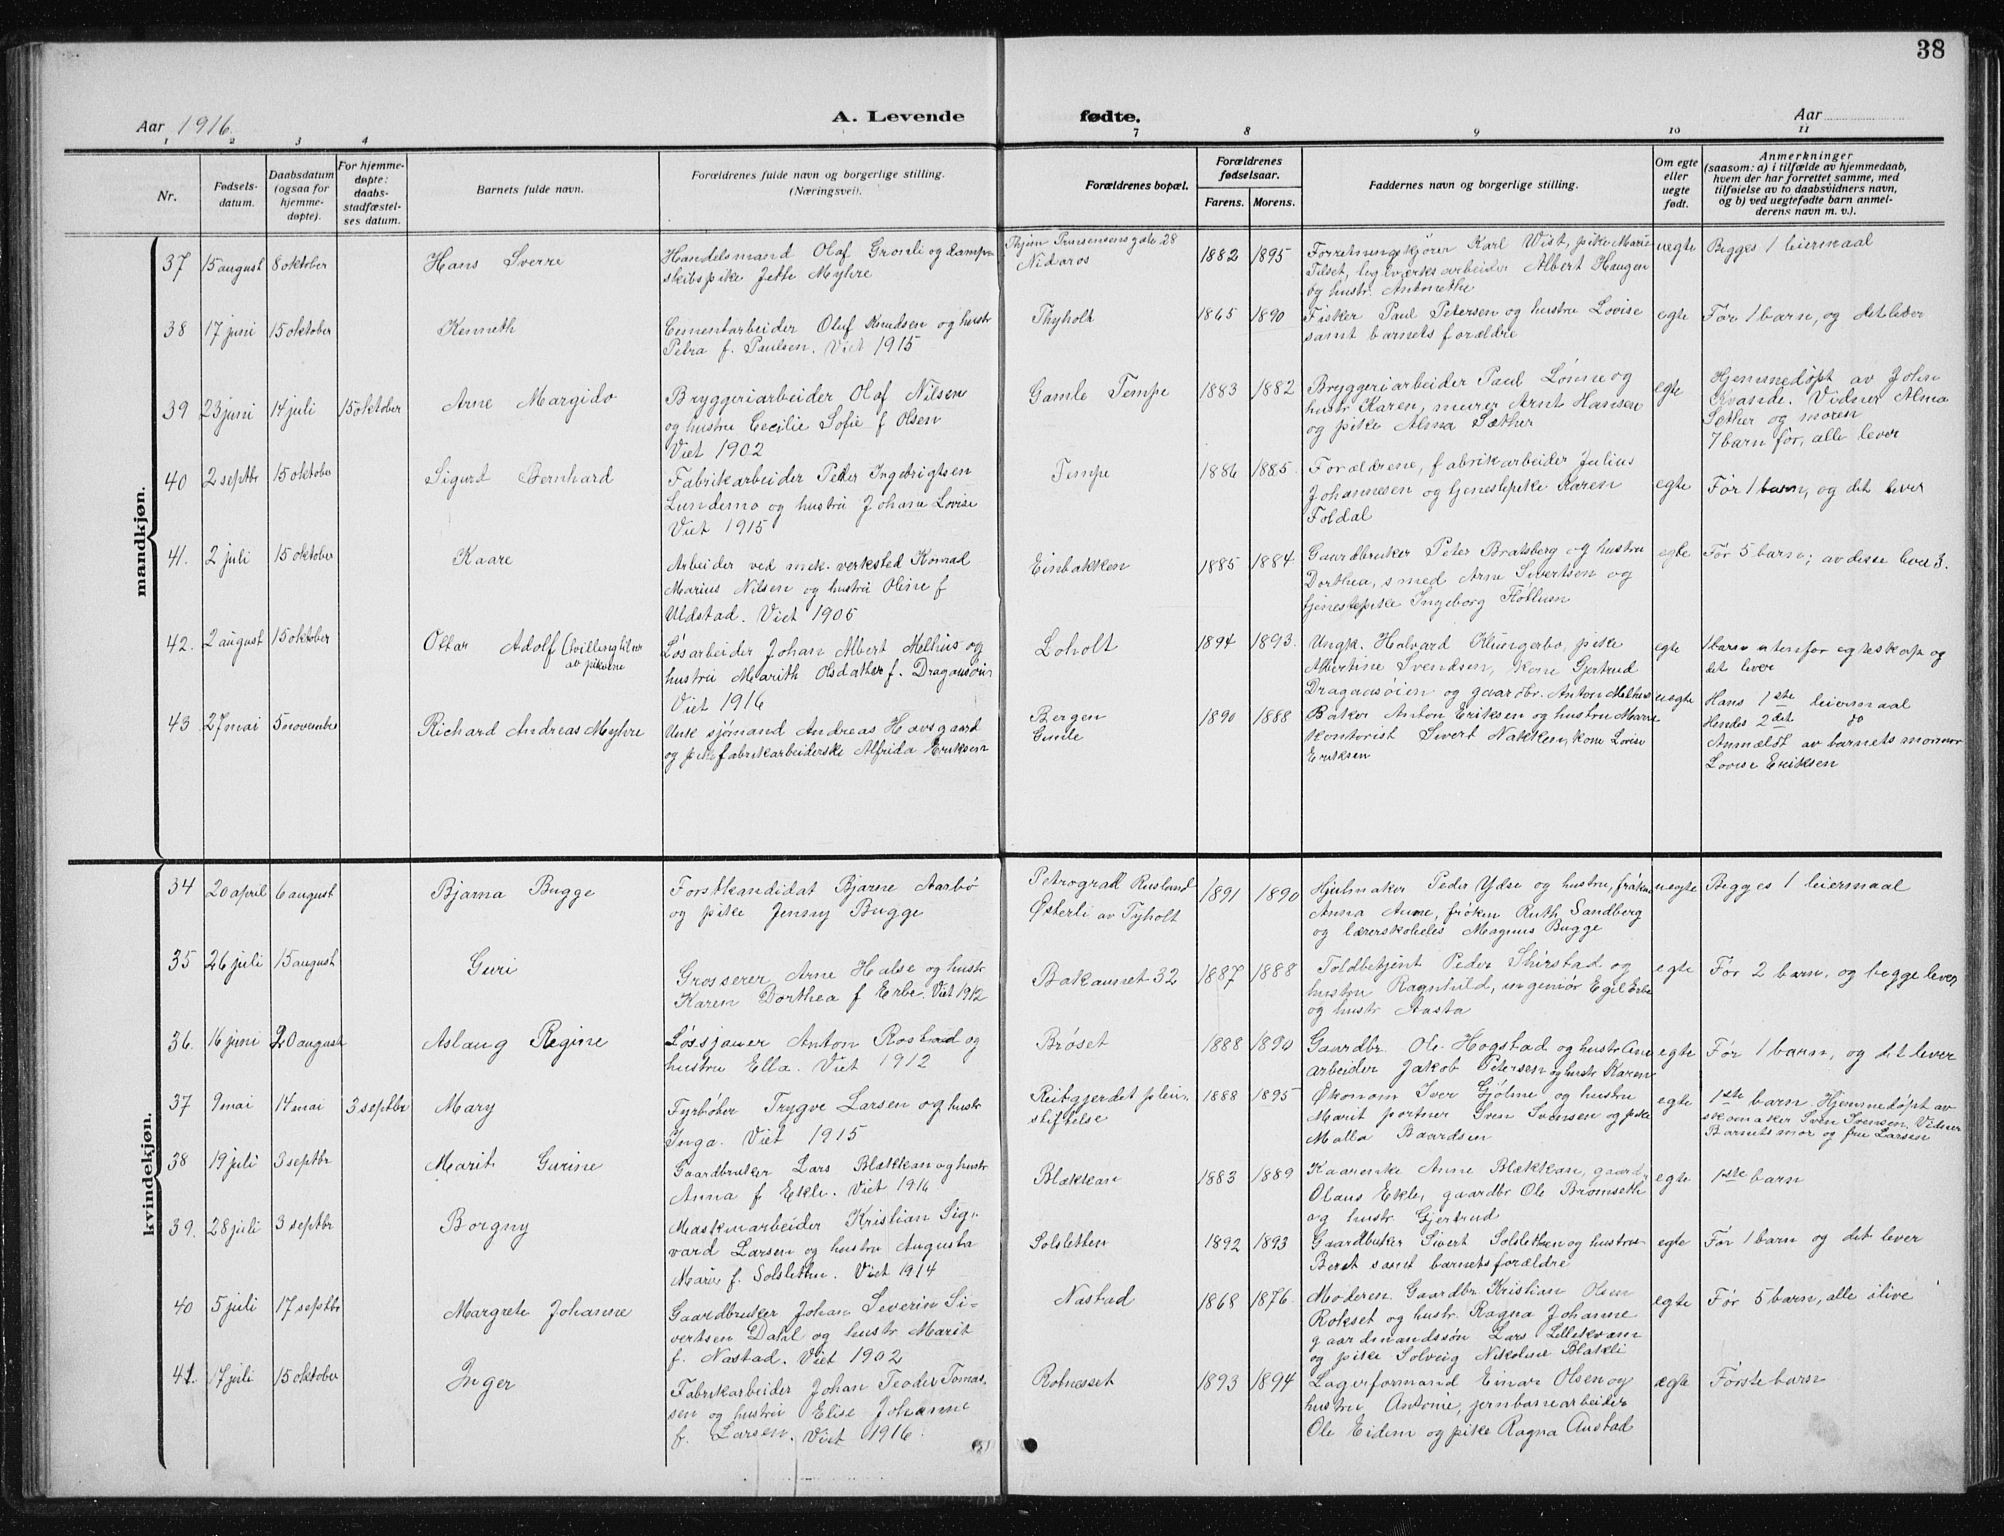 38
Aar 1916.
A. Levende fødte.
Aar
1 2 3 4 7 8 9 10 11
Nr.
Fødsels-
datum.
Daabsdatum
(ogsaa for
hjemme-
døpte).
For hjemme-
døpte:
daabs-
stadfæstel-
ses datum.
Barnets fulde navn.
Forældrenes fulde navn og borgerlige stilling.
(Næringsvei).
Forældrenes bopæl.
Forældrenes
fødselsaar.
Farens. Morens.
Faddernes navn og borgerlige stilling.
Om egte
eller
uegte
født.
Anmerkninger
(saasom: a) i tilfælde av hjemmedaab,
hvem der har forrettet samme, med
tilføielse av to daabsvidners navn,
og b) ved uegtefødte barn anmel-
derens navn m. v.).
mandkjøn.
37 15 august 8 oktober
Hans Sverre
Handelsmand Olaf Gronli og damp-
skibspike Jette Myhre
28
Nidaros
1882 1895
Forretningskjører Karl Wist, pike Marie
Tilset, legværksarbeider Albert Haugen
og hustr. Antonethe
uegte
Begges 1 leiermaal
38 17 juni 15 oktober
Kenneth
Cementarbeider Oluf Knudsen og hustr
Petra f. Paulsen. Viet 1915
Thyholt
1865 1890
Fisker Paul Petersen og hustru Lovise
samt barnets forældre
egte
Før 1 barn, og det lever
39 23 juni 14 juli 15 oktober
Arne Margido
Bryggeriarbeider Olaf Nilsen
og hustru Cecilie Sofie f Olsen
Viet 1902
Gamle Tempe
1883 1882
Bryggeriarbeider Paul Lønne og
hustr. Karen, murer Arnt Hansen
og pike Alma Sæther
egte
Hjemmedøpt av John
Kvande. Vidner Alma
Sæther og moren
7 barn før, alle lever
40 2 septbr 15 oktober
Sigurt Bernhard
Fabrikarbeider Peder Ingebrigtsen
Lundemo og hustru Johana Lovise
Viet 1915
Tempe
1886 1885
Forældrene, fabrikarbeider Julius
Johannesen og tjenestepike Karen
Foldal
egte
Før 1 barn, og det lever
41. 2 juli 15 oktober
Kaare
Arbeider ved mek. verksted Konrad
Marius Nilsen og hustru Oline f
Aldstad. Viet 1905
Einbakken
1885 1884
Gaardbruker Peter Bratsberg og hustru
Dorthea, smed Arne Sivertsen og
tjenestepike Ingeborg Flotten
egte
Før 5 barn; av disse lever 3.
42. 2 august 15 oktober
Ottar Adolf (tvilling til nr
av pikerne
Løsarbeider Johan Albert Melhus og
hustru Marith Olsdatter f. Dragaasøien
Viet 1916
Loholt
1894 1893.
Ungk. Halvard Klungerbo, pike
Albertine Svendsen, kone Gjertrud
Dragaasøien og gaardbr. Anton Melhus
egte
1 barn utenfor egteskap og
det lever
43 27 mai 5 november
Richard Andreas Myhre
Unk sjømand Andreas Havsgaard
og pike fabrikarbeiderske Alfrida Eriksen
Bergen
Gimle
1890 1888
Baker Anton Eriksen og hustru Marie
kontorist Sivert Nakken, kone Lovise
Eriksen
uegte
Hans 1ste leiermaal
Hendes 2det do
Anmeldt av barnets mormor
Lovise Eriksen
kvindekjøn.
34 20 april 6 august
Bjarna Bugge
Forstkandidat Bjarne Aarbø
og pike Jenny Bugge
Petrograd Rusland
Østerli av Tyholt
1891 1890
Hjulmaker Peder Ydse og hustru, frøken
Anna Aune, frøken Ruth Sandberg
og lærerskoleelev Magnus Bugge
uegte
Begges 1 leiermaal
35 26 juli 15 august
Guri
Grosserer Arne Halse og hustr
Karen Dorthea f Erbe. Viet 1912
Bakaunet 32
1887 1888
Toldbetjent Peder Skirstad og
hustru Ragnhild, ingeniør Egil Erbe
og hustr Aasta
egte
Før 2 barn, og begge lever
36. 16 juni 20 august
Aslaug Regine
Løssjauer Anton Rostad og
hustru Ella. Viet 1912
Brøset
1888 1890
Gaardbr. Ole Hogstad og hustr Ane
arbeider Jakob Petersen og hustr Karen
egte
Før 1 barn, og det lever
37 9 mai 14 mai 3 septbr
Mary
Fyrbøter Trygve Larsen og hustr
Inga. Viet 1915
Reitgjerdet pleie-
stiftelse
1888 1895
Økonom Iver Gjølme og hustru
Marit portner Sven Svensen og pike
Malla Baardsen
egte
1ste barn. Hjemmedøpt av
skomaker Sven Svensen. Vidner
Barnets mor og fru Larsen
38 19 juli 3 septbr
Marit Gurine
Gaardbruker Lars Blækkan og hustr
Anna f Ekle. Viet 1916
Blækkan
1883 1889
Kaarenke Anne Blækkan, gaardbr
Olaus Ekle, gaardbr Ole Bromseth
og hustr Gjertrud
egte
1ste barn
39. 28 juli 3 septbr
Borgny
Maskinarbeider Kristian Sig-
vard Larsen og hustru Augusta
Marie f. Solsletten. Viet 1914
Solsletten
1892 1893
Gaardbuker Sivert Solsletten og hustru
Beret samt barnets forældre
egte
Før 1 barn og det lever
40 5 juli 17 septbr
Margrete Johanne
Gaardbruker Johan Severin Si-
vertsen Dalal og hustr Marit
f. Nastad. Viet 1902
Nastad
1868 1876.
Moderen Gaardbr Kristian Olsen
Rokset og hustr. Ragna Johanne
gaardmandssøn Lars Lillekvam
og pike Solveig Nikoline Blakli
egte
Før 5 barn, alle i live
41. 17 juli 15 oktober
Inger
Fabrikarbeider Johan Teodor Tomas-
sen og hustru Elise Johanne
f. Larsen. Viet 1916.
Rotnesset
1893 1894
Lagerformand Einar Olsen og
hustru Antonie, jernbanearbeider
Ole Eidem og pike Ragna Aunstad
ægte
Første barn